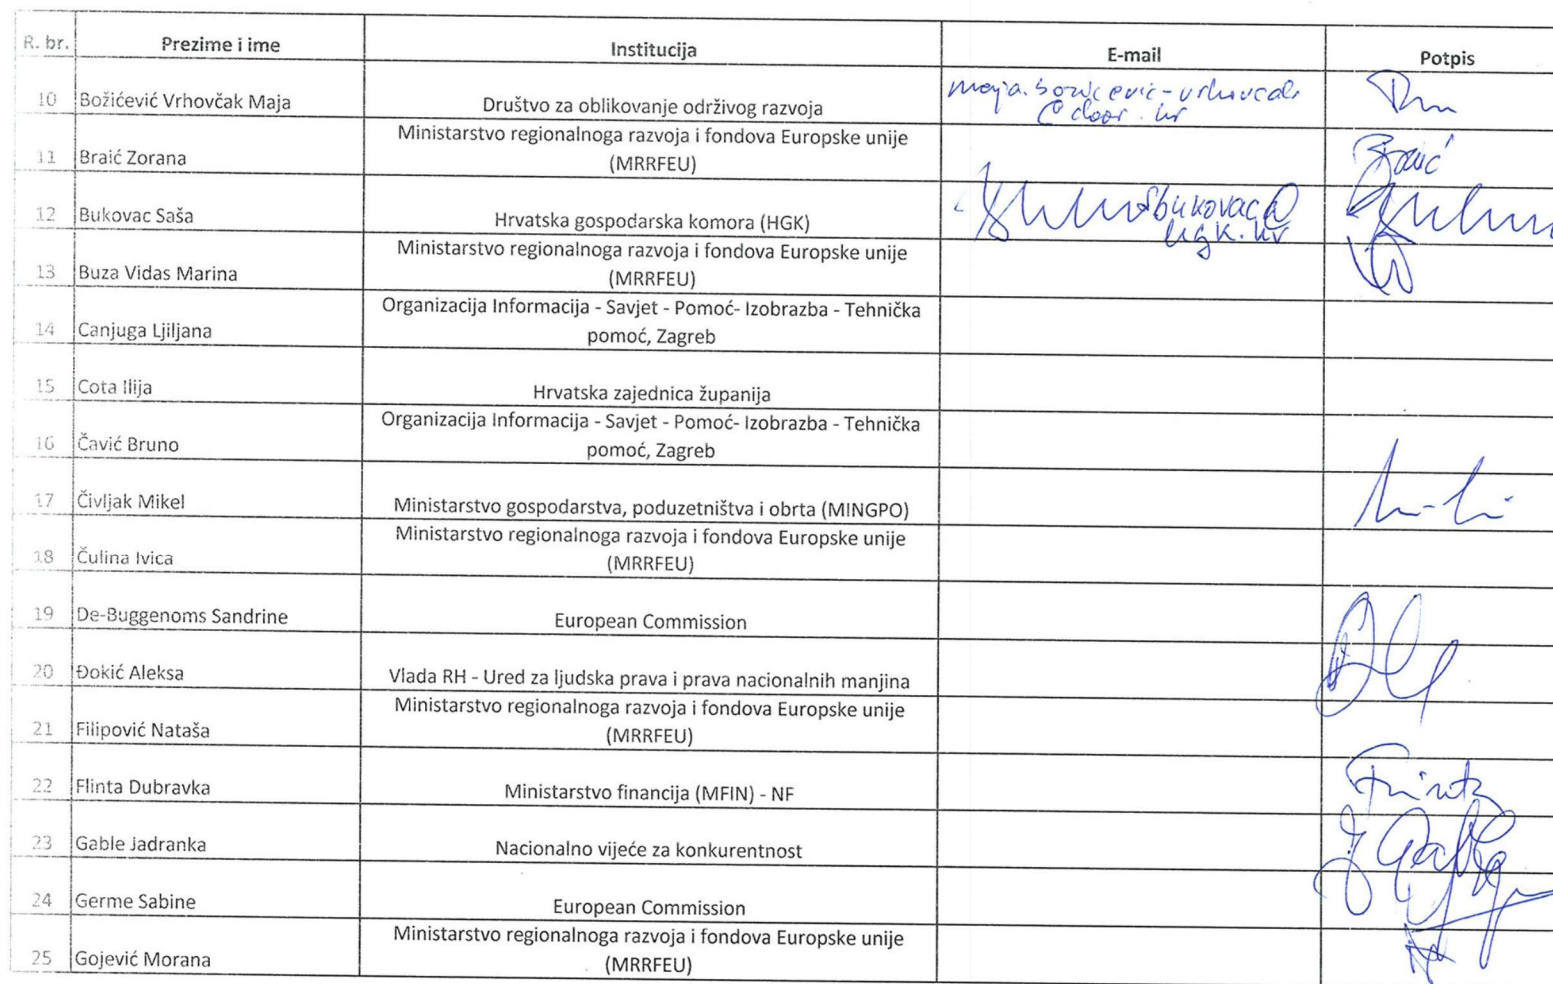 R. br. Prezime i ime Institucija E-mail Potpis
10 Božićević Vrhovčak Maja Društvo za oblikovanje održivog razvoja
@door.hr
11 Braić Zorana Ministarstvo regionalnoga razvoja i fondova Europske unije
(MRRFEU) Braić
12 Bukovac Saša Hrvatska gospodarska komora (HGK) sbukovac@
hgk.hr
13 Buza Vidas Marina Ministarstvo regionalnoga razvoja i fondova Europske unije
(MRRFEU)
14 Canjuga Ljiljana Organizacija Informacija - Savjet - Pomoć- Izobrazba - Tehnička
pomoć, Zagreb
15 Cota Ilija Hrvatska zajednica županija
16 Čavić Bruno Organizacija Informacija - Savjet - Pomoć- Izobrazba - Tehnička
pomoć, Zagreb
17 Čivljak Mikel Ministarstvo gospodarstva, poduzetništva i obrta (MINGPO)
18 Čulina Ivica Ministarstvo regionalnoga razvoja i fondova Europske unije
(MRRFEU)
19 De-Buggenoms Sandrine European Commission
20 Đokić Aleksa Vlada RH - Ured za ljudska prava i prava nacionalnih manjina
21 Filipović Nataša Ministarstvo regionalnoga razvoja i fondova Europske unije
(MRRFEU)
22 Flinta Dubravka Ministarstvo financija (MFIN) - NF
23 Gable Jadranka Nacionalno vijeće za konkurentnost
24 Germe Sabine European Commission
25 Gojević Morana Ministarstvo regionalnoga razvoja i fondova Europske unije
(MRRFEU)